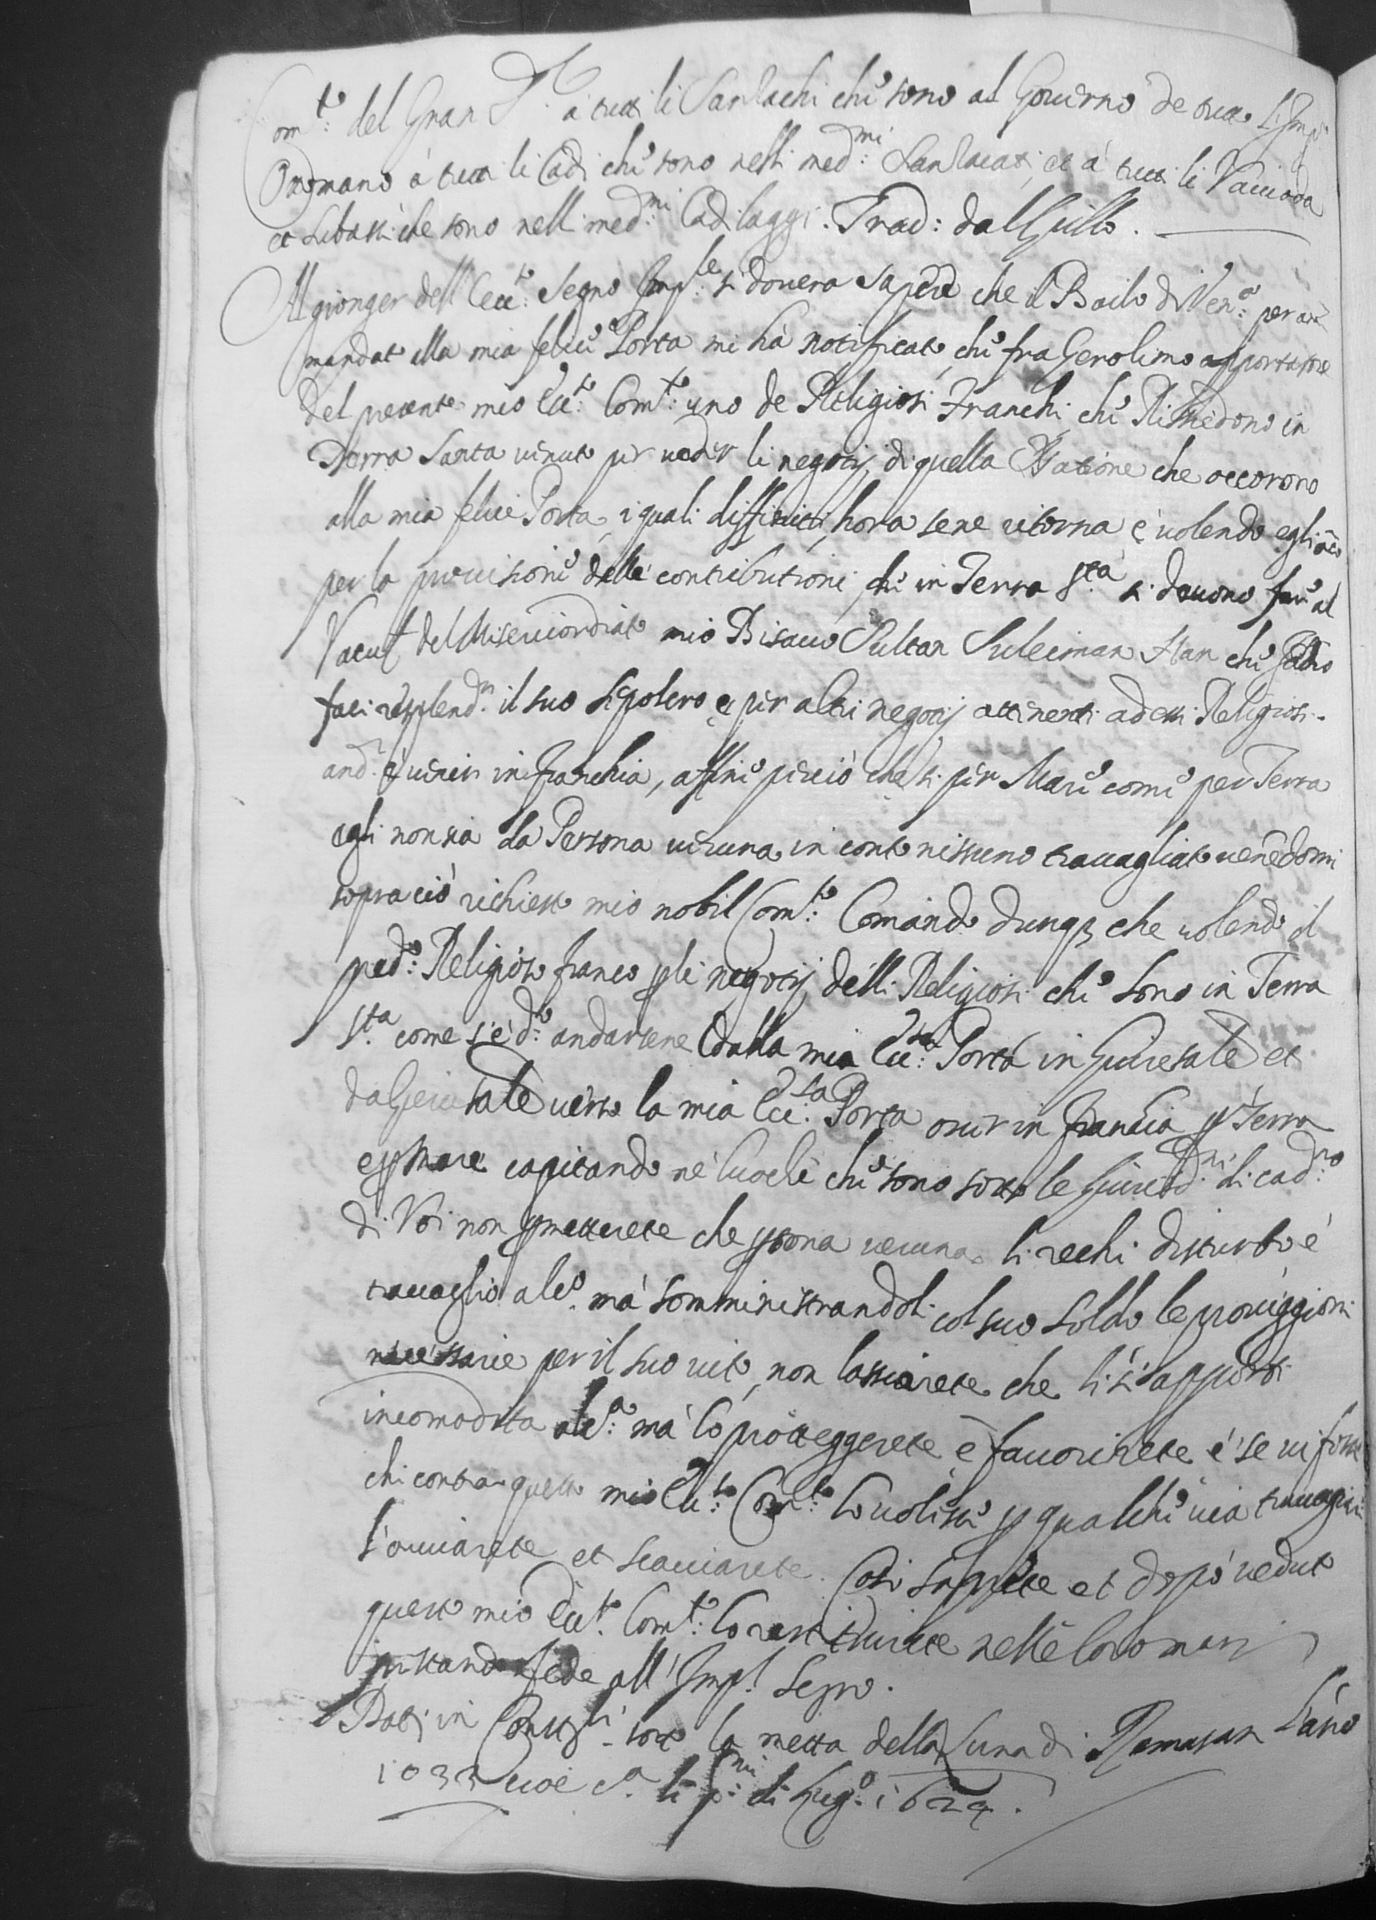 Com.to del Gran S.r à tutti li Sanzachi che sono al Governo de tutto l'Imp.o
Ottomano à tutti li Cadi che sono nelli med.mi Sanzacati, et à tutti li Vaivoda
et Subassi che sono nelli med.mi Cadilaggi. Trad: dal Grillo.
All gionger dell'Ecc.o Segno Imp.le si doverà sapere che il Bailo di Ven.a per
mandato alla mia felice Porta mi hà notificato, che fra Gerolimo apportatore
del presente mio Ecc.to Com.to uno de Religiosi Franchi che Rissiedono in
Terra Santa venuto per veder li negotij di quella Natione che occorono
alla mia felice Porta, i quali diffiniti, hora se ne ritorna e volendo egli
per la provisione delle contributioni che in Terra S.ta si devono fare al
Vacuf del Misericordiato mio Bisavo Sultan Suleiman Han che Iddio
faci risplend.r il suo sepolcro e per altri negotij attinenti ad essi Religiosi
and.r e venir in Franchia, affine perciò che si per Mare come per Terra
egli non sia da Persona veruna in conto nissuno travagliato venēdomi
sopra ciò richiesto mio nobil Com.to Comando dunq3 che volendo il
pred.o Religioso franco p li negotij delli Religiosi che sono in Terra
S.ta come s'è d.o andarsene dalla mia Ecc.sa Porta in Gierusalē et
da Gierusalē verso la mia Ecc.sa Porta over in Franchia p Terra
e p Mare capitando ne luochi che sono sotto le Giurisd.ni di cad.no
di Voi non p metterete che p sona veruna li rechi disturbo è
travaglio alc.o mà somministrandoli col suo soldo le proviggioni
necessarie per il suo vito, non lassiarete che li si apporti
incomodità alc.a mà lo proteggerete, e favorirete e se vi fosse
chi contra questo mio Ecc.to Com.to lo volesse p qualche via travagliar
l'ovviarete et scacciarete. Così saprete et dopò veduto
questo mio Ecc.to Com.to lo restituirete nelle loro mani
prestando fede all'Imp.l Segno.
Dat: in Const.li sotto la metta della Luna di Ramasan l'año
1033 cioè c.a li p.mi di Lug.o 1624.